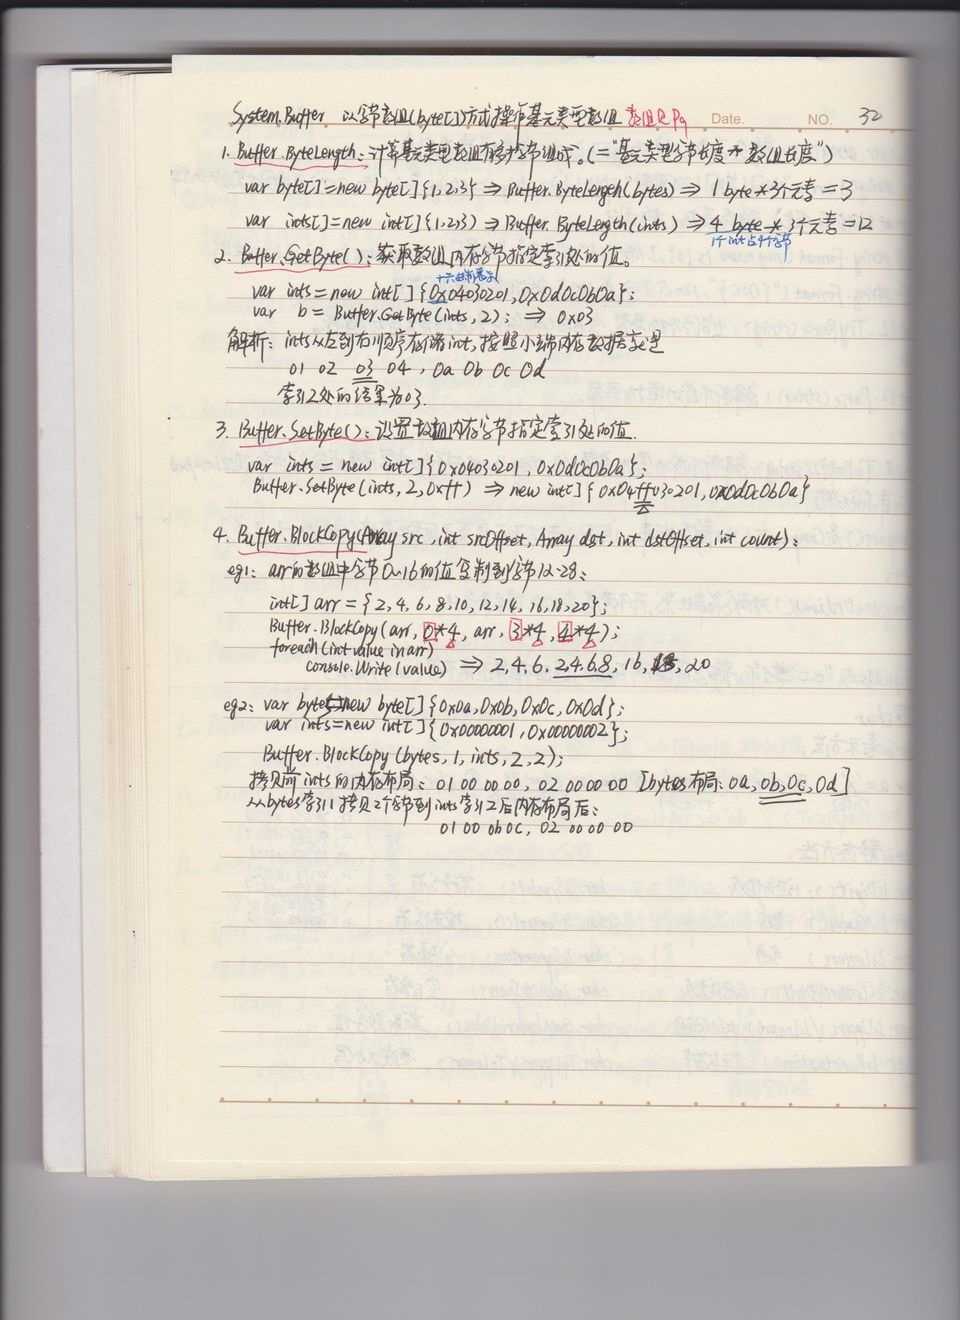 System.Buffer 以字节数组(byte[])方式操作基元类型数组 数组见P9 Date. NO. 32
1. Buffer.ByteLength：计算基元类型数组有多少字节组成。(="基元类型字节长度 * 数组长度")
var byte[]=new byte[]{1,2,3} ⇒ Buffer.ByteLength(bytes) ⇒ 1 byte * 3个元素 = 3
var ints[]=new int[]{1,2,3} ⇒ Buffer.ByteLength(ints) ⇒ 4 byte * 3个元素 = 12
1个int占4个字节
2. Buffer.GetByte()：获取数组内存字节指定索引处的值。
十六进制表示
var ints = new int[]{0x04030201,0x0d0c0b0a};
var b = Buffer.GetByte(ints,2); ⇒ 0x03
解析：ints从左到右顺序存储int,按照小端内存数据就是
01 02 03 04 , 0a 0b 0c 0d
索引2处的结果为03.
3. Buffer.SetByte()：设置数组内存字节指定索引处的值.
var ints = new int[]{0x04030201,0x0d0c0b0a};
Buffer.SetByte(ints,2,0xff) ⇒ new int[]{0x04ff030201,0x0d0c0b0a}
4. Buffer.BlockCopy(Array src,int srcOffset,Array dst,int dstOffset,int count)：
eg1：arr的数组中字节0-16的值复制到字节12-28：
int[] arr = {2,4,6,8,10,12,14,16,18,20};
Buffer.BlockCopy(arr, 0*4, arr, 3*4, 4*4);
foreach(int value in arr)
Console.Write(value) ⇒ 2,4,6,2,4,6,8,16,18,20
eg2：var bytes=new byte[]{0x0a,0x0b,0x0c,0x0d};
var ints=new int[]{0x00000001,0x00000002};
Buffer.BlockCopy(bytes,1,ints,2,2);
拷贝前ints的内存布局：01 00 00 00, 02 00 00 00 [bytes布局：0a,0b,0c,0d]
从bytes索引1拷贝2个字节到ints索引2后内存布局后：
01 00 0b 0c, 02 00 00 00